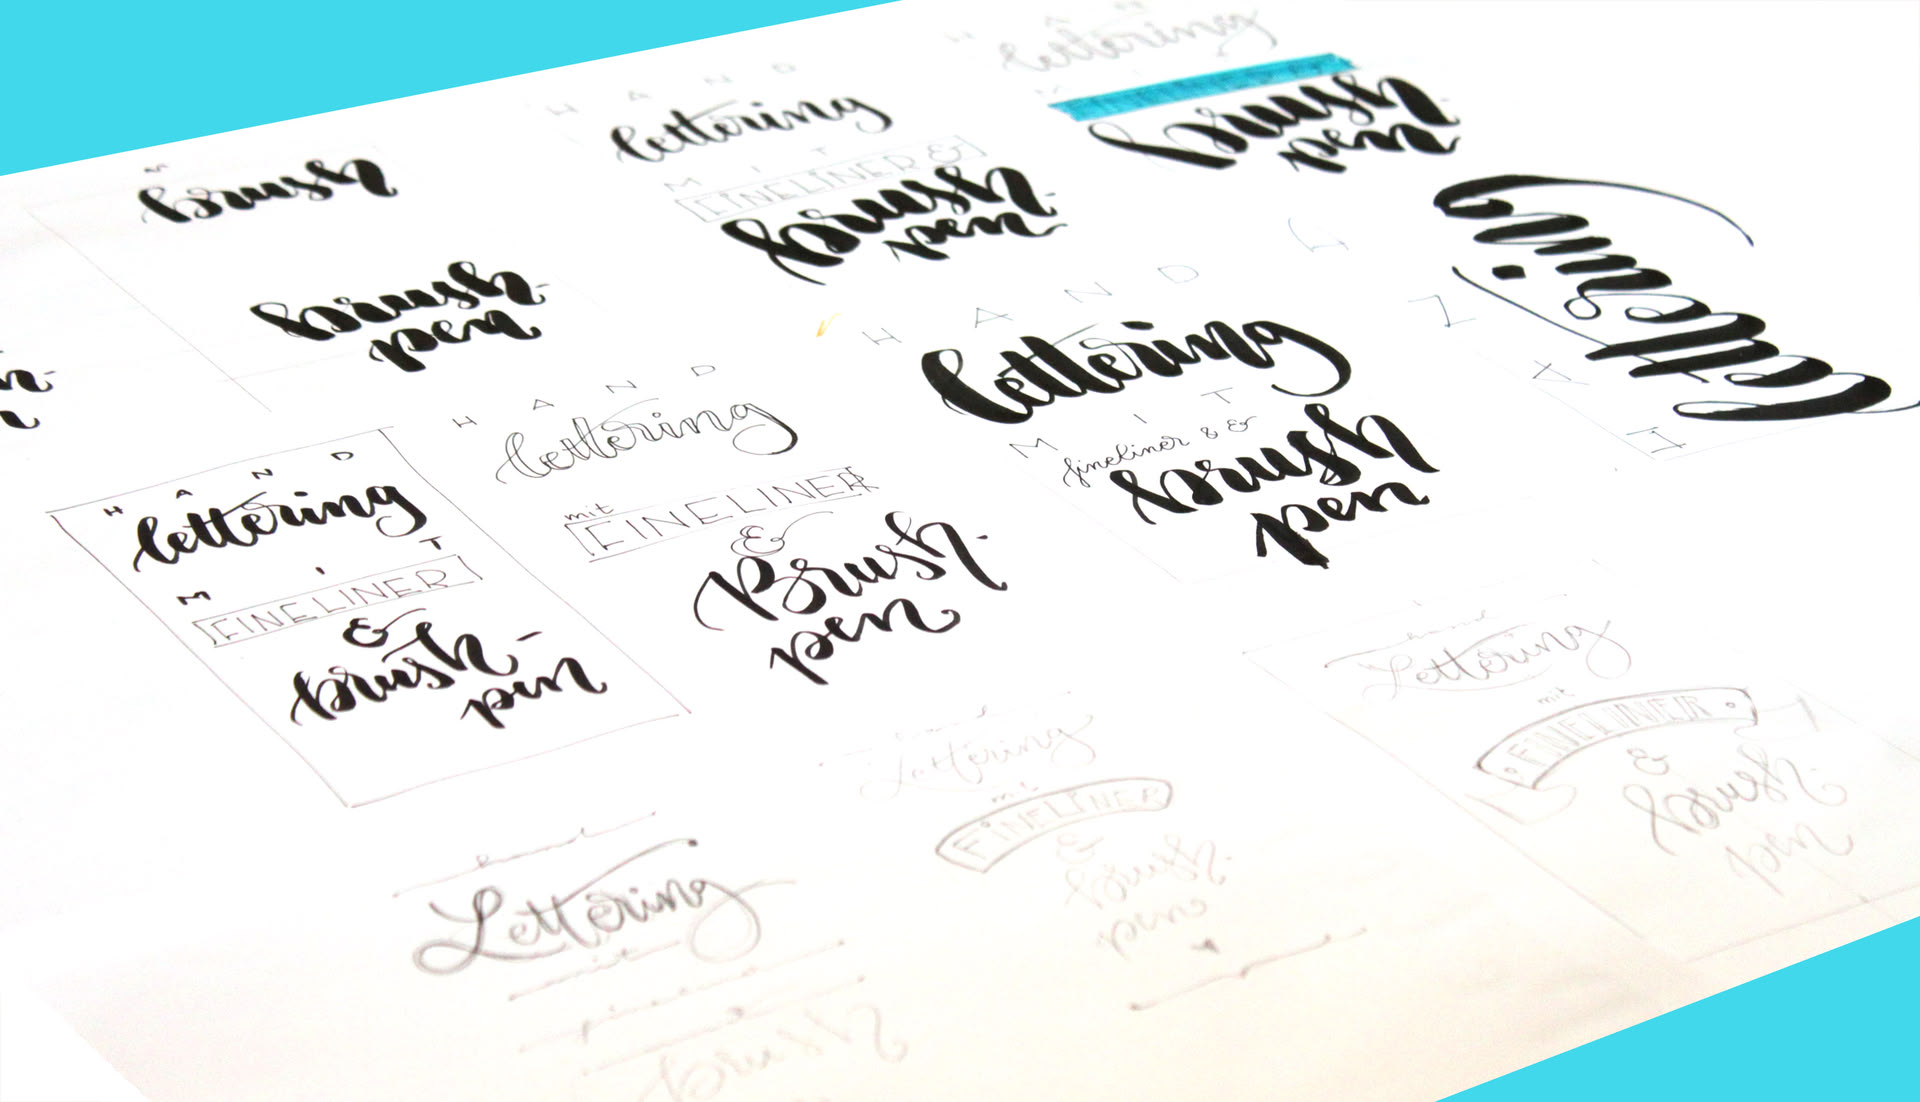 brush
brush
pen
HAND
lettering
MIT
FINELINER &
brush
pen
lettering
brush
pen
lettering
HAND
lettering
MIT
fineliner & &
brush
pen
HAND
lettering
mit
FINELINER
&
Brush
pen
HAND
lettering
MIT
FINELINER
&
brush-
pen
hand
Lettering
mit
FINELINER
&
brush
pen
Lettering
mit
FINELINER
&
brush
pen
hand
Lettering
mit